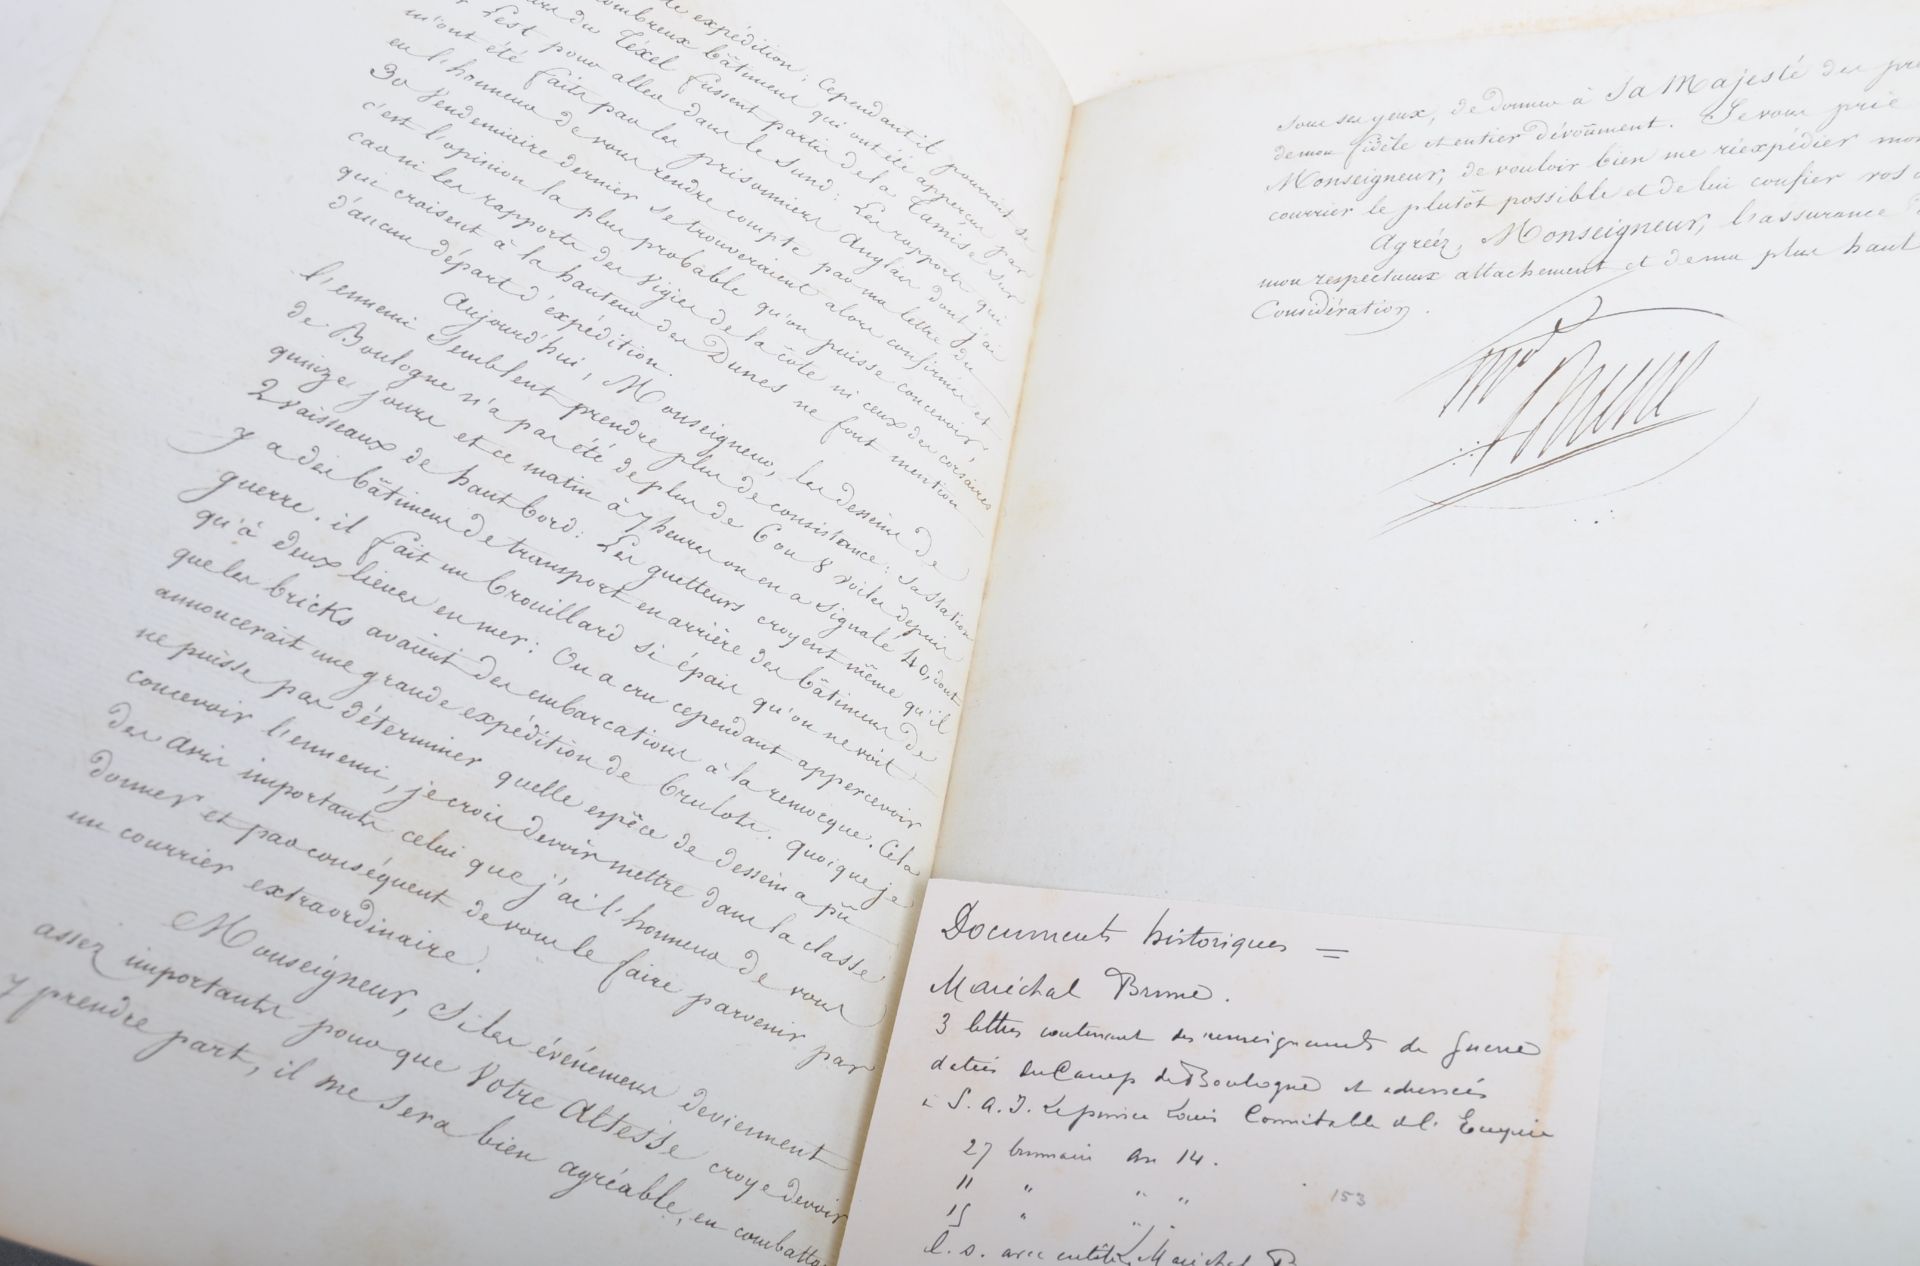 expédition ; Cependant il pourrait se
nombreux bâtimens qui ont été apperçus par
du Téxel fussent partis de la Tamise sur
l'est pour aller dans le Sund : Les rapports qui
m'ont été faits par les prisonniers Anglais dont j'ai
eu l'honneur de vous rendre compte par ma lettre du
30 Vendemiaire dernier se trouveraient alors confirmés et
c'est l'opinion la plus probable qu'on puisse concevoir,
car ni les rapports des Vigies de la côte ni ceux des corsaires
qui croisent à la hauteur des Dunes ne font mention
d'aucun départ d'expédition.
Aujourd'hui, Monseigneur, les desseins de
l'ennemi semblent prendre plus de consistance ; Sa Station
de Boulogne n'a pas été de plus de 6 ou 8 voiles depuis
quinze jours et ce matin à 7 heures on en a signalé 40, dont
2 vaisseaux de haut bord : Les guetteurs croyent même qu'il
y a des bâtimens de transport en arrière des bâtimens de
guerre. il fait un brouillard si épais qu'on ne voit
qu'à deux lieues en mer : On a cru cependant appercevoir
que les bricks avaient des embarcations à la remorque. Cela
annoncerait une grande expédition de brulots. quoique je
ne puisse pas déterminer quelle espèce de dessein a pû
concevoir l'ennemi, je crois devoir mettre dans la classe
des avis importants celui que j'ai l'honneur de vous
donner et par conséquent de vous le faire parvenir par
un courrier extraordinaire.
Monseigneur, Si les évènemens deviennent
assez importants pour que Votre Altesse croye devoir
y prendre part, il me sera bien agréable, en combatta
sous ses yeux, de donner à Sa Majesté des pre
de mon fidèle et entier dévoûment. Je vous prie
Monseigneur, de vouloir bien me réexpédier mon
courrier le plutôt possible et de lui confier vos
Agréez, Monseigneur, l'assurance
mon respectueux attachement et de ma plus haut
Considération.
Mal Brune
Documents historiques =
Maréchal Brune.
3 lettres contenant des renseignements de guerre
datées du Camp de Boulogne et adressées
à S. A. I. Le prince Louis Connétable de l'Empire
27 brumaire An 14.
11 " " "
15 " " "
153
l. s. avec entête Maréchal B